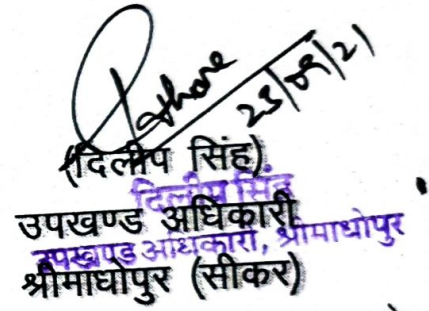 Rathore
23/09/21
(दिलीप सिंह)
दिलीप सिंह
उपखण्ड अधिकारी
उपखण्ड अधिकारी, श्रीमाधोपुर
श्रीमाधोपुर (सीकर)